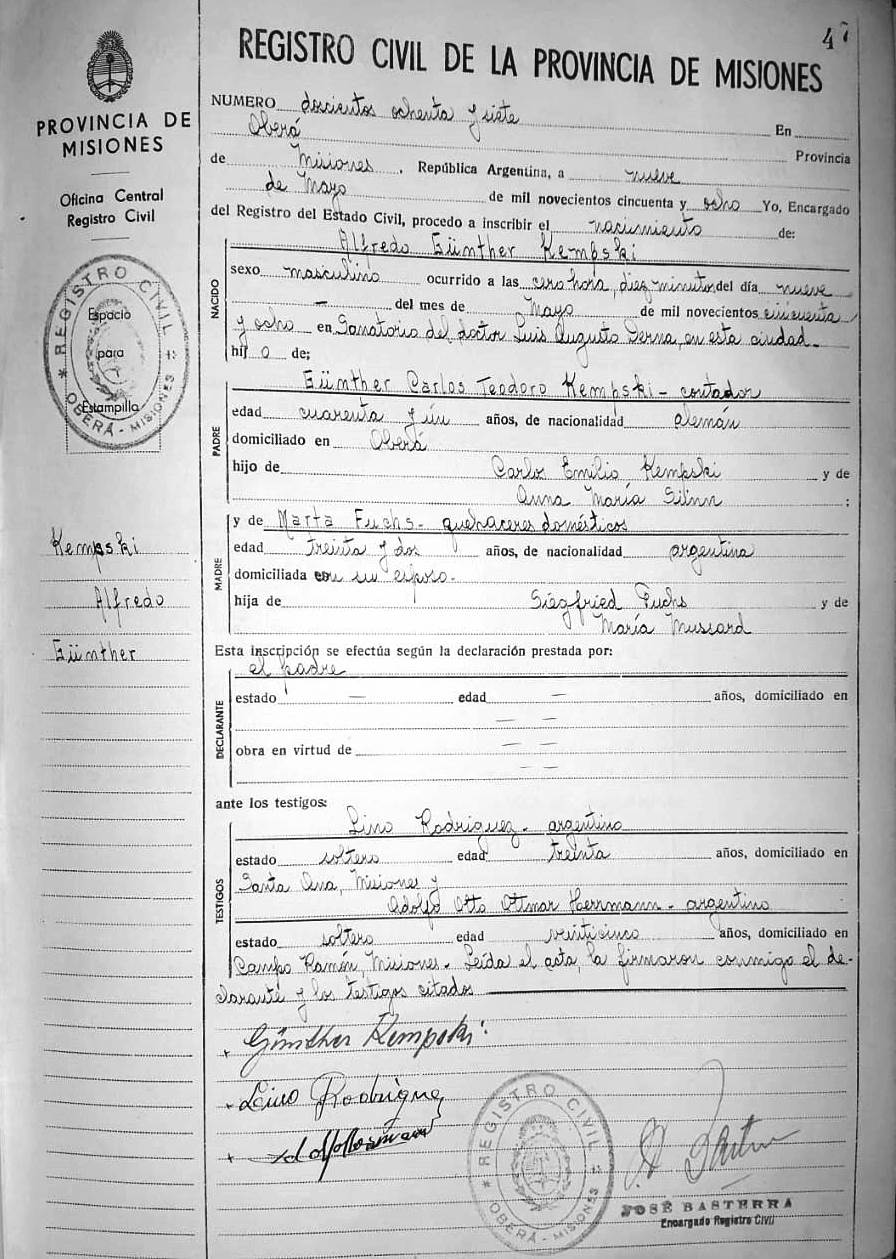 47
REGISTRO CIVIL DE LA PROVINCIA DE MISIONES
PROVINCIA DE
MISIONES
Oficina Central
Registro Civil
REGISTRO CIVIL
* OBERÁ - MISIONES *
Espacio
para
Estampilla
Kempski
Alfredo
Günther
NUMERO doscientos ochenta y siete En
Oberá Provincia
de Misiones, República Argentina, a nueve
de Mayo de mil novecientos cincuenta y ocho Yo, Encargado
del Registro del Estado Civil, procedo a inscribir el nacimiento de:
NACIDO
Alfredo Günther Kempski
sexo masculino ocurrido a las cero hora, diez minutos del día nueve
— del mes de Mayo de mil novecientos cincuenta
y ocho en Sanatorio del doctor Luis Augusto Derna, en esta ciudad.
hijo de;
PADRE
Günther Carlos Teodoro Kempski - contador
edad cuarenta y ún años, de nacionalidad alemán
domiciliado en Oberá
hijo de Carlos Emilio Kempski y de
Anna María ;
MADRE
y de Marta Fuchs - quehaceres domésticos
edad treinta y dos años, de nacionalidad argentina
domiciliada con su esposo.
hija de Siegfried Fuchs y de
María Mussard
Esta inscripción se efectúa según la declaración prestada por:
DECLARANTE
el padre
estado — edad — años, domiciliado en
— —
obra en virtud de — —
— —
ante los testigos:
TESTIGOS
Lino Rodriguez - argentino
estado soltero edad treinta años, domiciliado en
Santa Ana, Misiones y
Adolfo Otto Ottmar Herrmann - argentino
estado soltero edad veinticinco años, domiciliado en
Campo Ramón, Misiones - Leída el acta, la firmaron conmigo el de-
clarante y los testigos citados
+ Günther Kempski
+ Lino Rodriguez
+
REGISTRO CIVIL
* OBERÁ - MISIONES *
JOSÉ BASTERRA
Encargado Registro Civil